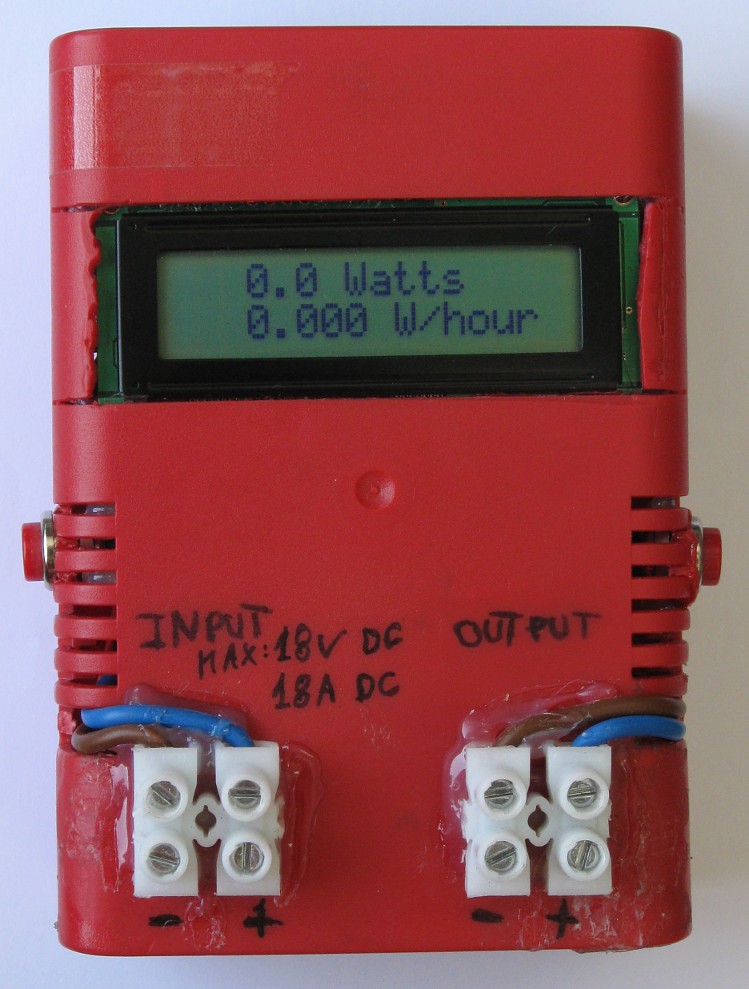 0.0 Watts
0.000 W/hour
INPUT
MAX: 18V DC
18A DC
OUTPUT
- +
- +